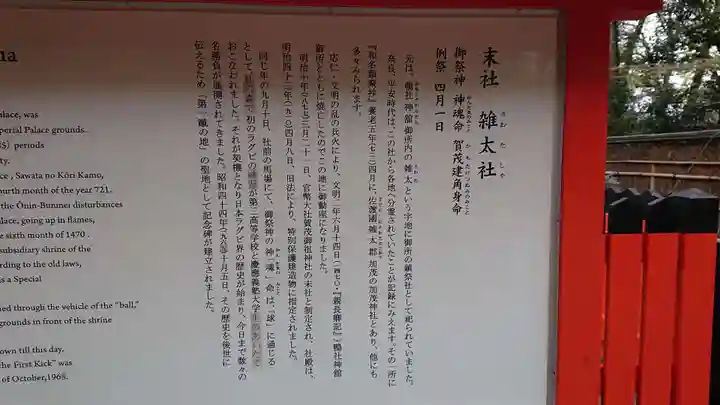 末社 雑太社
さわたしゃ
御祭神 神魂命 賀茂建角身命
例祭 四月一日
元は、鴨社神館御所内の雑太という字地に御所の鎮祭社として祀られていました。
奈良、平安時代は、この社から各地へ分霊されていたことが記録にみえます。その一所に
『和名類聚社』養老五年(七二一)四月に、佐渡國雑太郡加茂の加茂神社とあり、他にも
多々みられます。
応仁・文明の乱の兵火により、文明二年六月十四日(一四七〇・『親長卿記』)鴨社神館
御所とともに焼亡したのでこの地に御動座になりました。
明治十年(一八七七)三月二十一日、官幣大社賀茂御祖神社の末社と制定され、社殿は、
明治四十三年(一九一〇)四月八日、旧法により、特別保護建造物に指定されました。
同じ年の九月十日、社前の馬場にて、御祭神の神「魂」命は「球」に通じる
として 初のラグビの が第三高等学校と慶應義塾大学
おこなわれました。それが契機となり日本ラグビ界の歴史が始まり、今日まで数々の
名勝負が展開されてきました。昭和四十四年(一九六九)十月五日、その歴史を後世に
伝えるため「第一蹴の地」の聖地として記念碑が建立されました。
na
alace, was
perial Palace grounds.
85) periods
ty.
ce , Sawata no Kōri Kamo,
ourth month of the year 721.
the Ōnin-Bunmei disturbances
alace, going up in flames,
e sixth month of 1470 .
subsidiary shrine of the
rding to the old laws,
s a Special
ned through the vehicle of the “ball,”
grounds in front of the shrine
own till this day.
the First Kick” was
of October,1968.